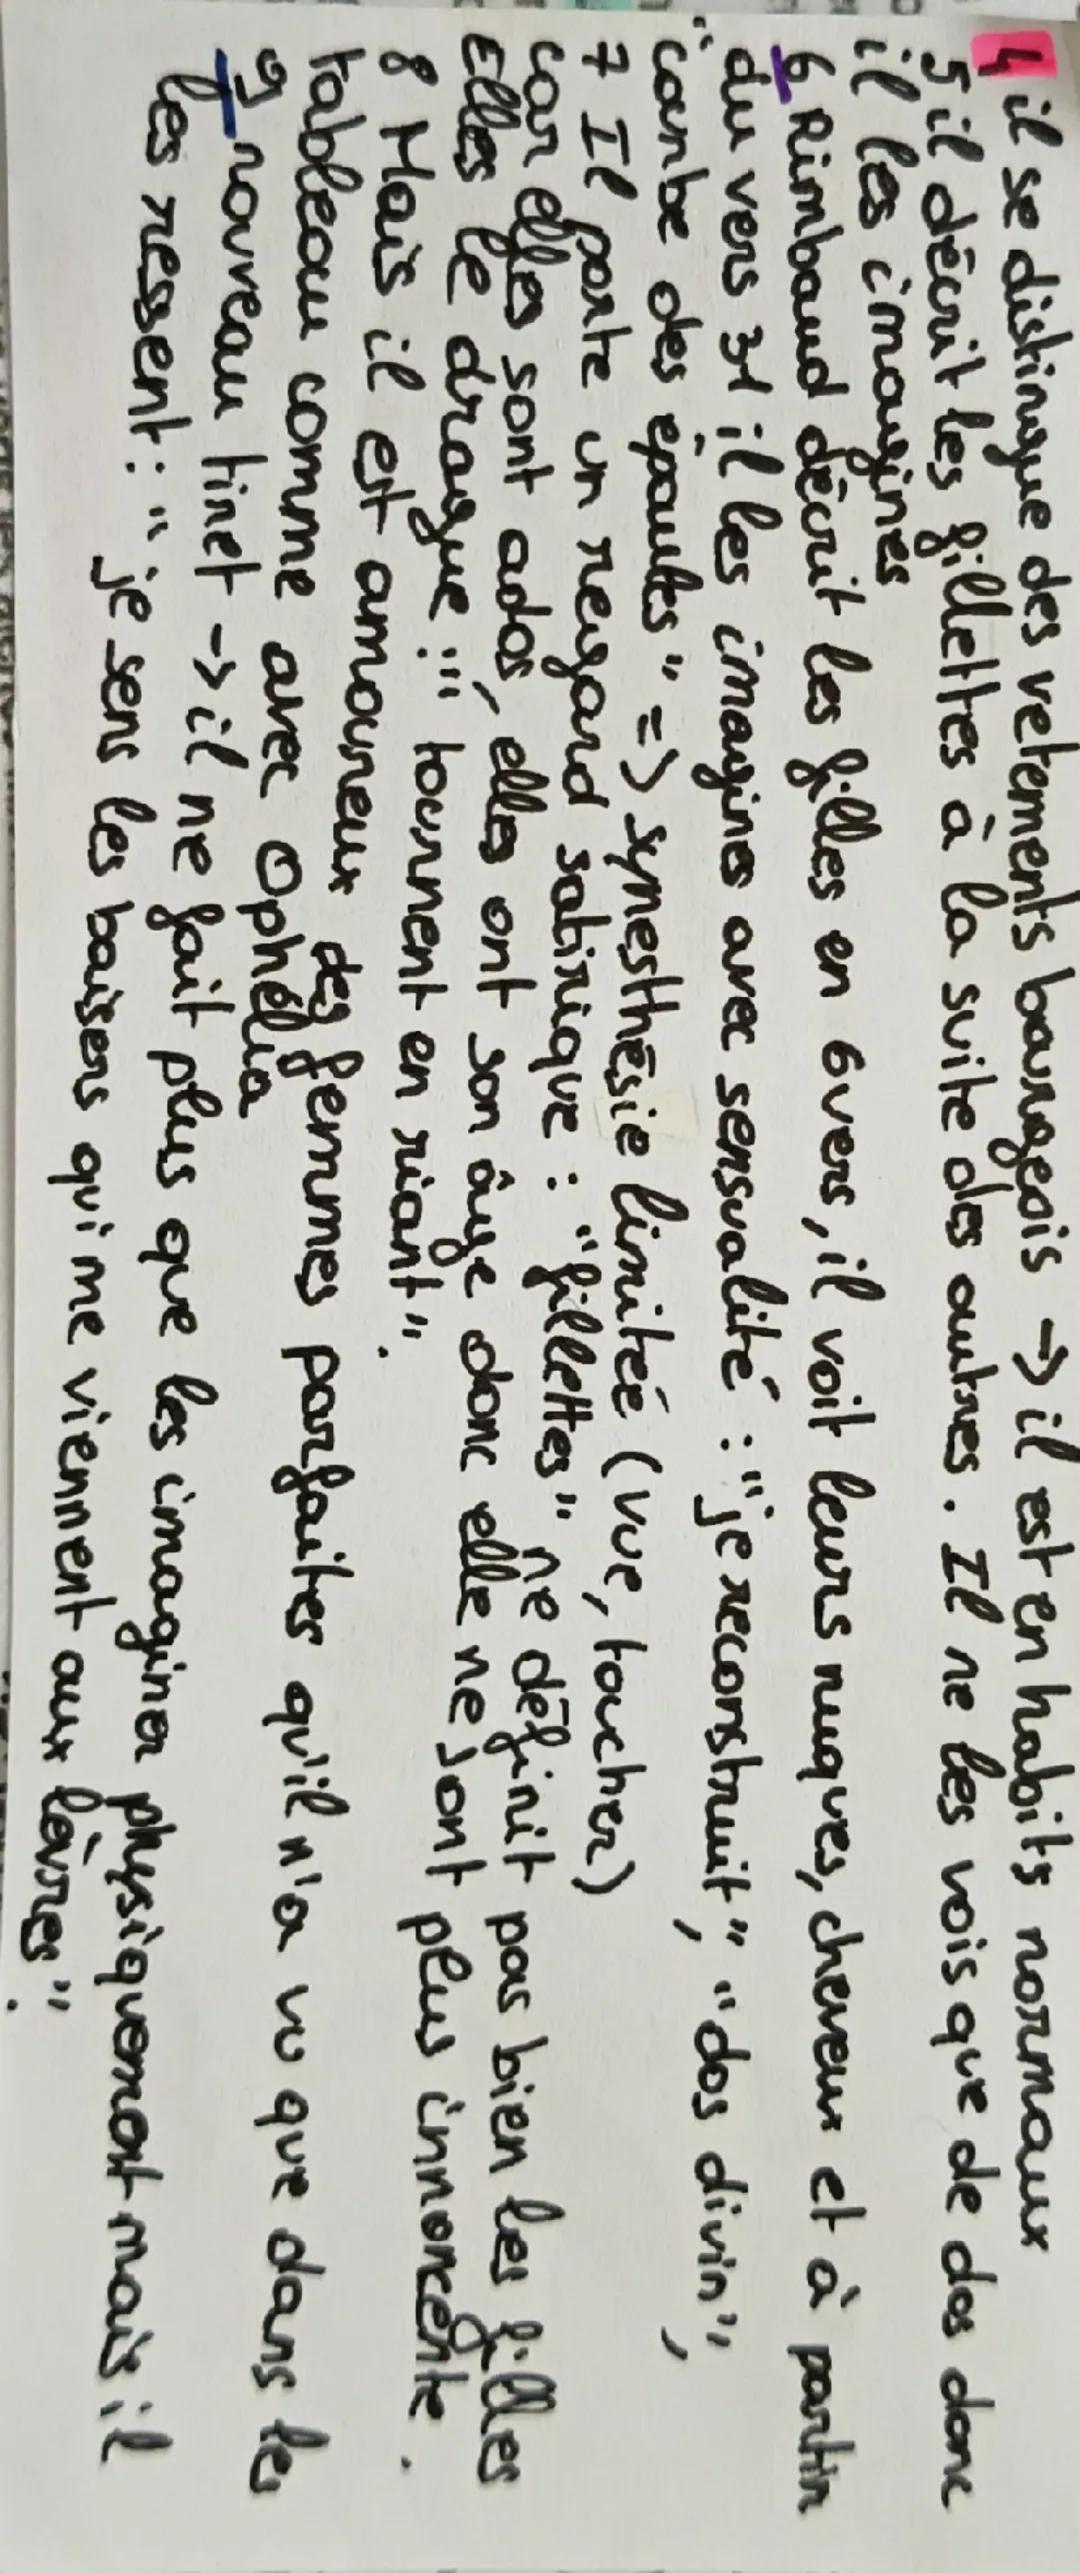 4 il se distingue des vetements bourgeois -> il est en habits normaux
5 il décrit les fillettes à la suite des autres. Il ne les vois que de dos donc
il les imagines
6 Rimbaud décrit les filles en 6 vers, il voit leurs nuques, cheveux et à partir
du vers 31 il les imagines avec sensualité : "je reconstruit", "dos divin",
"courbe des épaules" => synesthésie limitée (vue, toucher)
7 Il porte un regard satirique : "fillettes" ne définit pas bien les filles
car elles sont ados, elles ont son âge donc elle ne sont plus innocente.
Elles le drague !!! tournent en riant".
8 Mais il est amoureux des femmes parfaites qu'il n'a vu que dans les
tableau comme avec Ophélia
9 nouveau tiret -> il ne fait plus que les imaginer physiquement mais il
les ressent : "je sens les baisers qui me viennent aux lèvres".